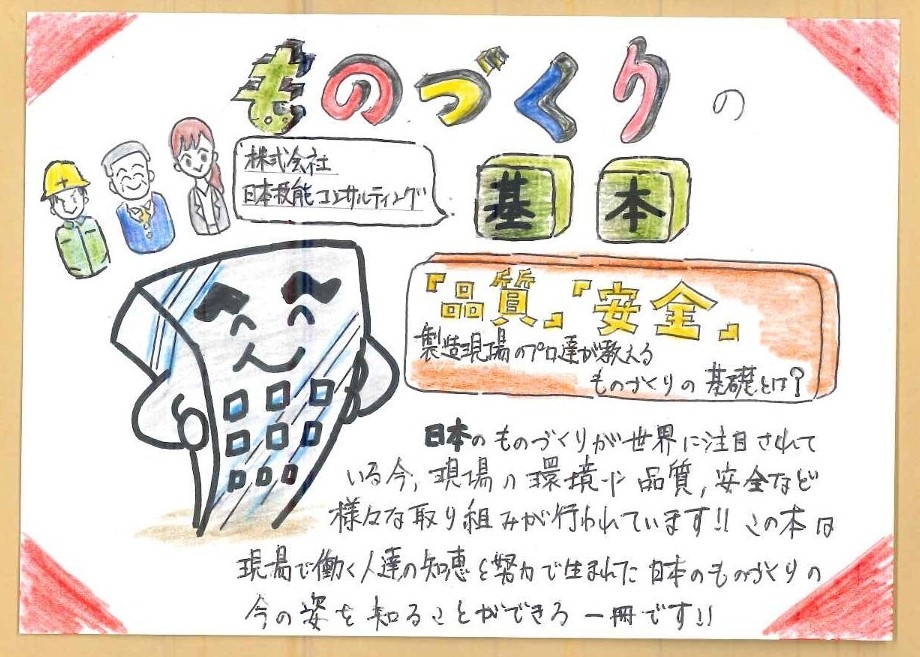 ものづくりの
株式会社
日本技能コンサルティング
基本
『品質』『安全』
製造現場のプロ達が教える
ものづくりの基礎とは?
日本のものづくりが世界に注目されて
いる今、現場の環境や品質、安全など
様々な取り組みが行われています!! この本は
現場で働く人達の知恵と努力で生まれた日本のものづくりの
今の姿を知ることができる一冊です!!